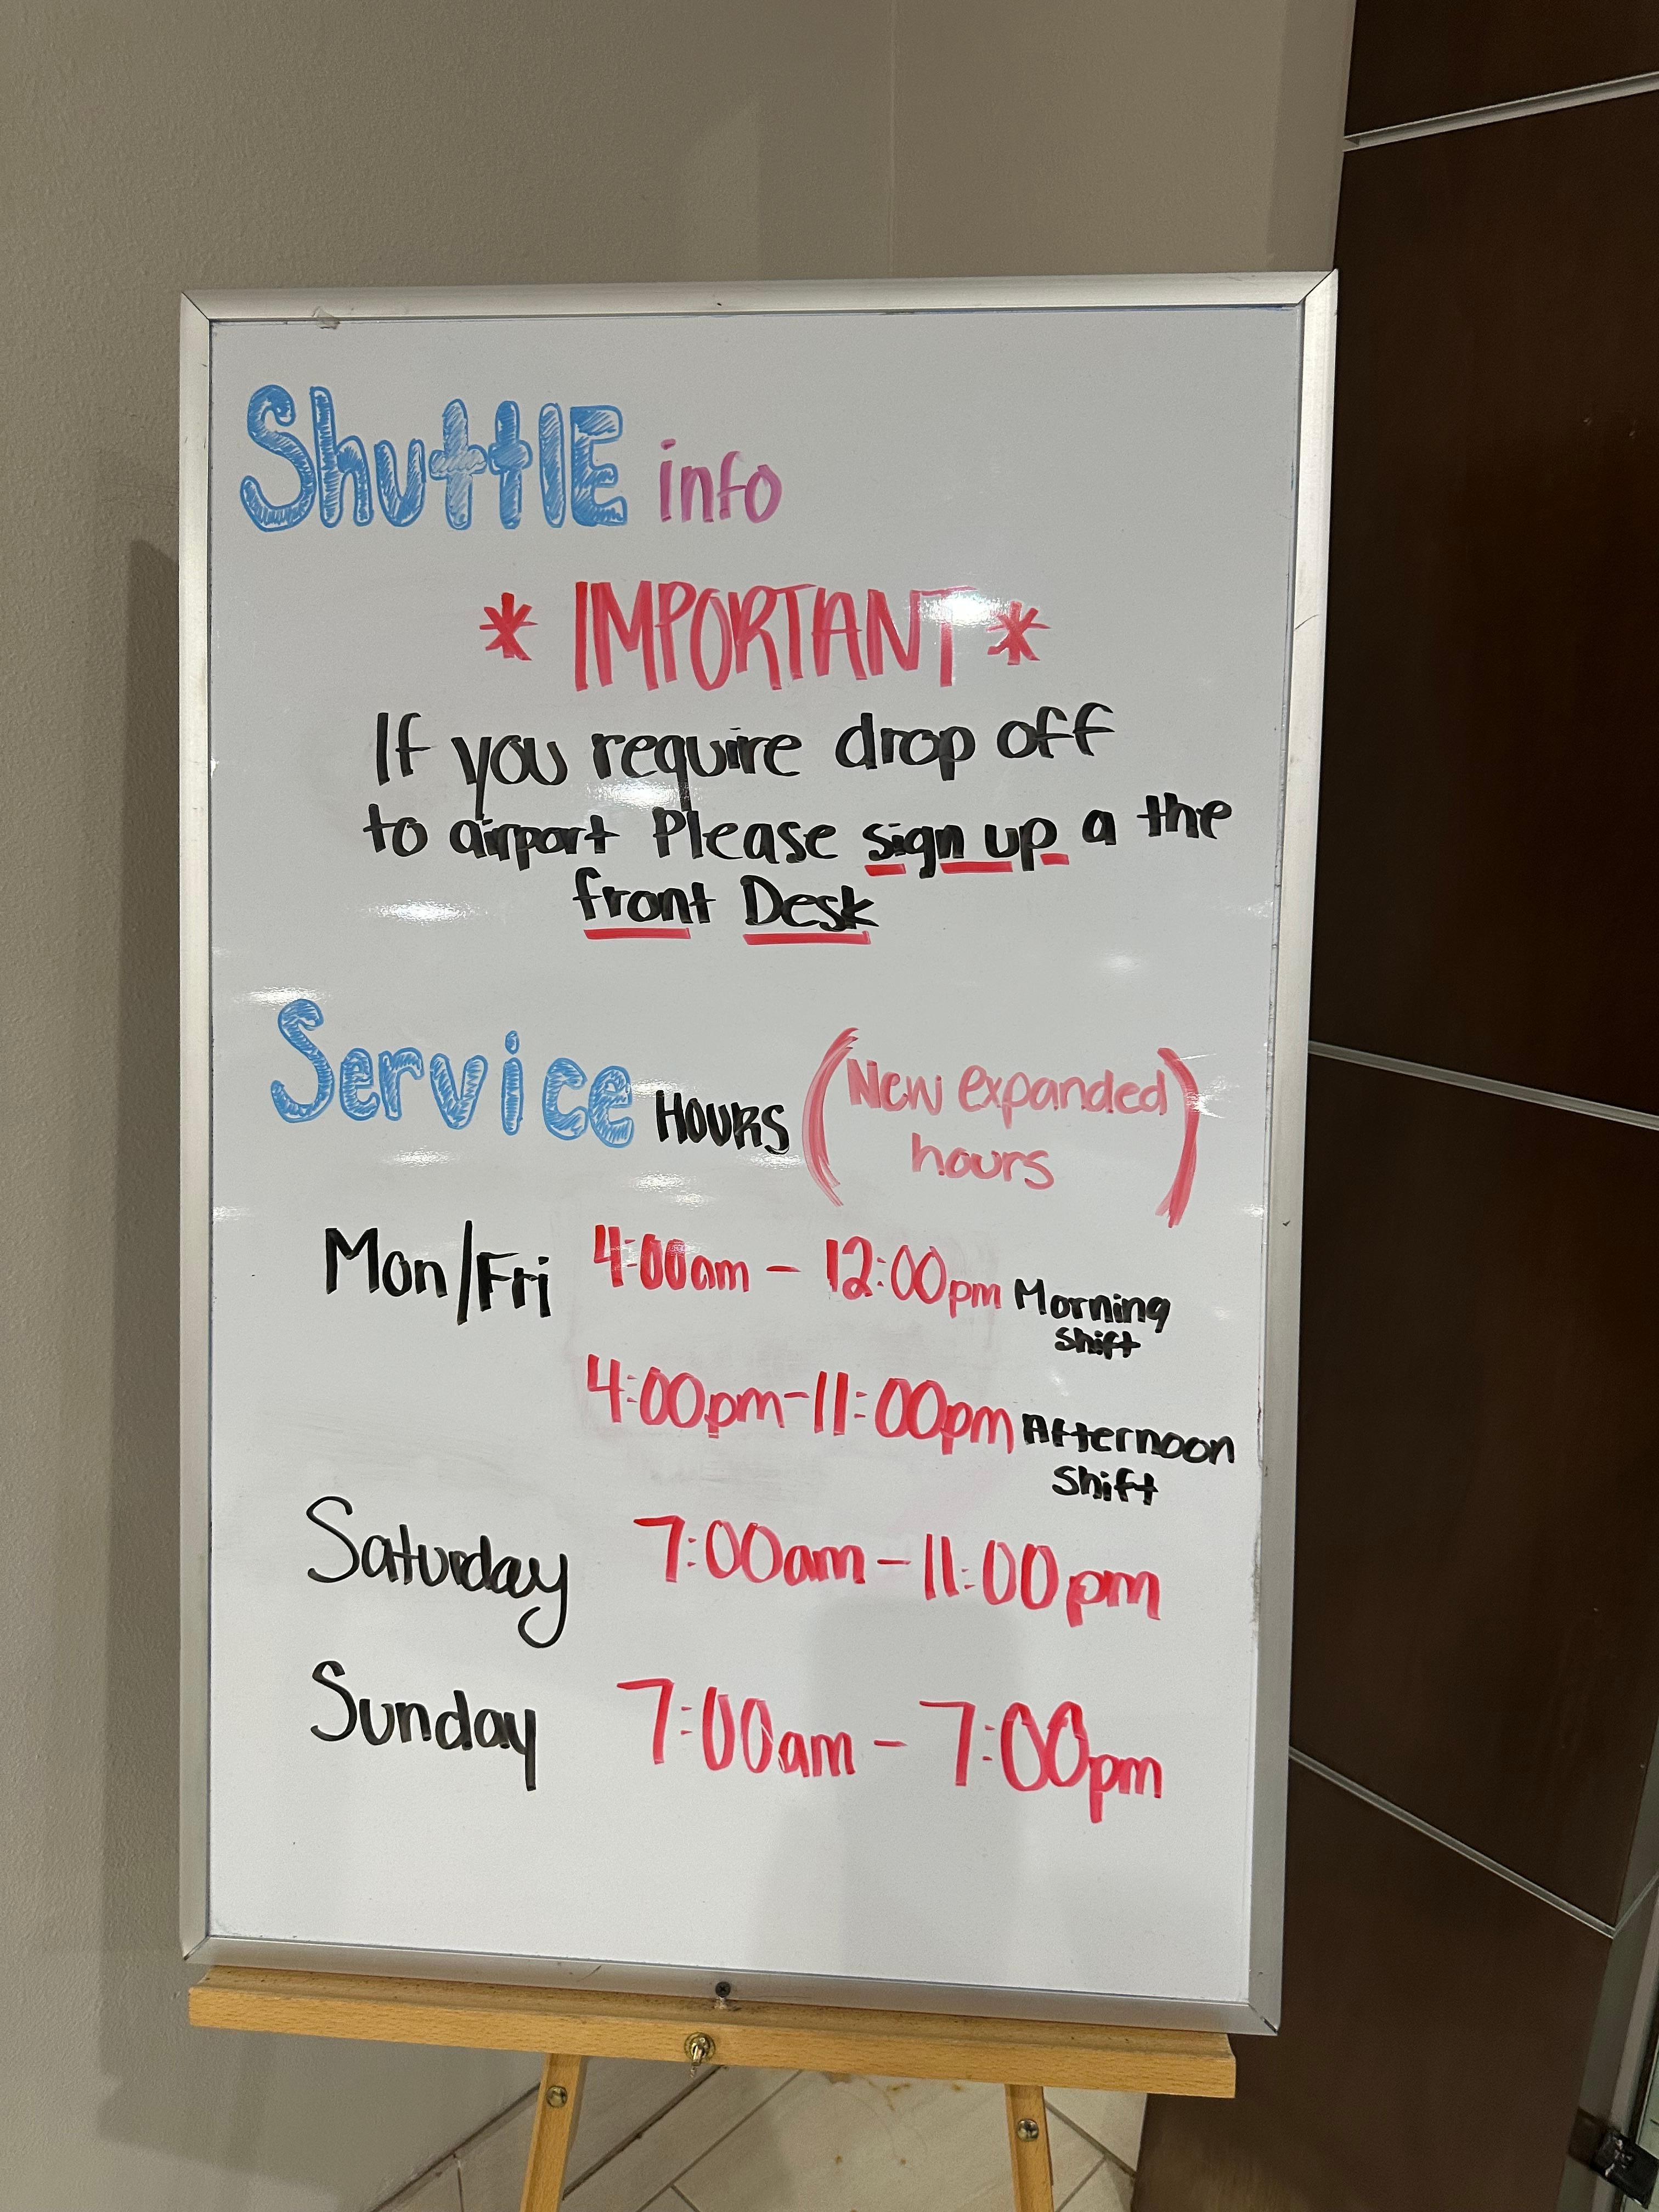 ShuttlE info
* IMPORTANT *
If you require drop off
to airport Please sign up a the
front Desk
Service HOURS (New expanded
hours)
Mon/Fri 4:00am - 12:00pm Morning
shift
4:00pm-11:00pm Afternoon
shift
Saturday 7:00am - 11:00pm
Sunday 7:00am - 7:00pm